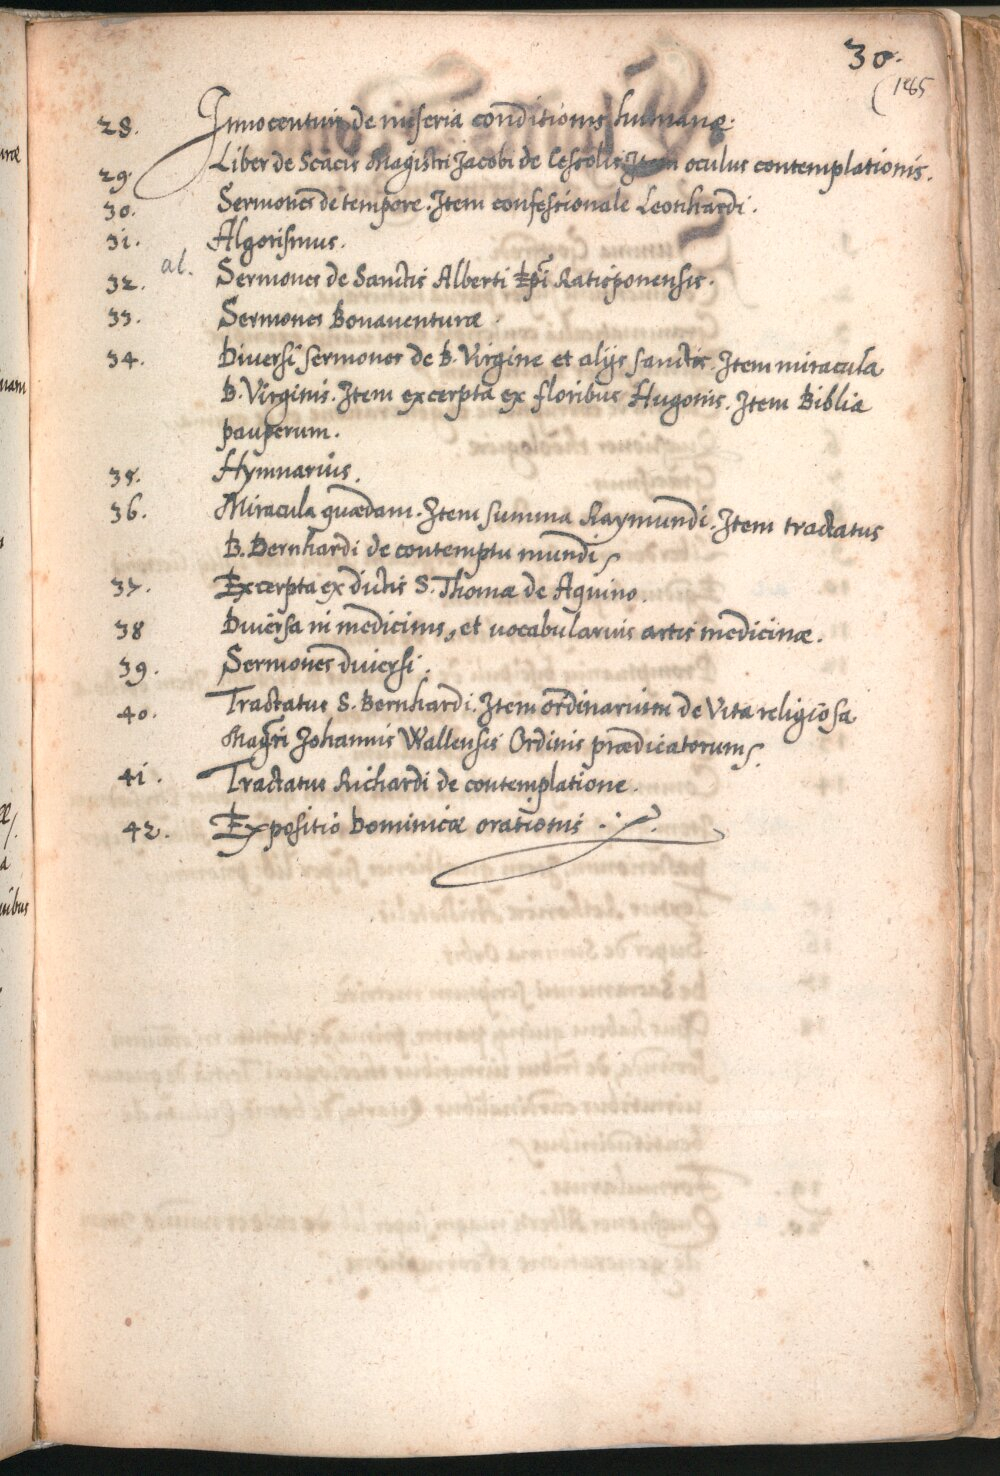 30.
(185
28. Innocentius de miseria conditionis humanæ.
29. Liber de Scacis Magistri Jacobi de Cessolis Item oculus contemplationis.
30. Sermones de tempore. Item confessionale Leonhardi.
31. Algorismus.
al.
32. Sermones de Sanctis Alberti Epi Ratisponensis.
33. Sermones Bonaventuræ.
34. Diversi sermones de B. Virgine et alijs sanctis. Item miracula
B. Virginis. Item excerpta ex floribus Hugonis. Item Biblia
pauperum.
35. Hymnarius.
36. Miracula quædam. Item summa Raymundi. Item tractatus
B. Bernhardi de contemptu mundi
37. Excerpta ex dictis S. Thomæ de Aquino.
38 Diversa in medicinis, et vocabularius artis medicinæ.
39. Sermones diversi.
40. Tractatus S. Bernhardi. Item ordinarium de Vita religiosa
Magri Johannis Wallensis Ordinis prædicatorum.
41. Tractatus Richardi de contemplatione.
42. Expositio Dominicæ orationis.